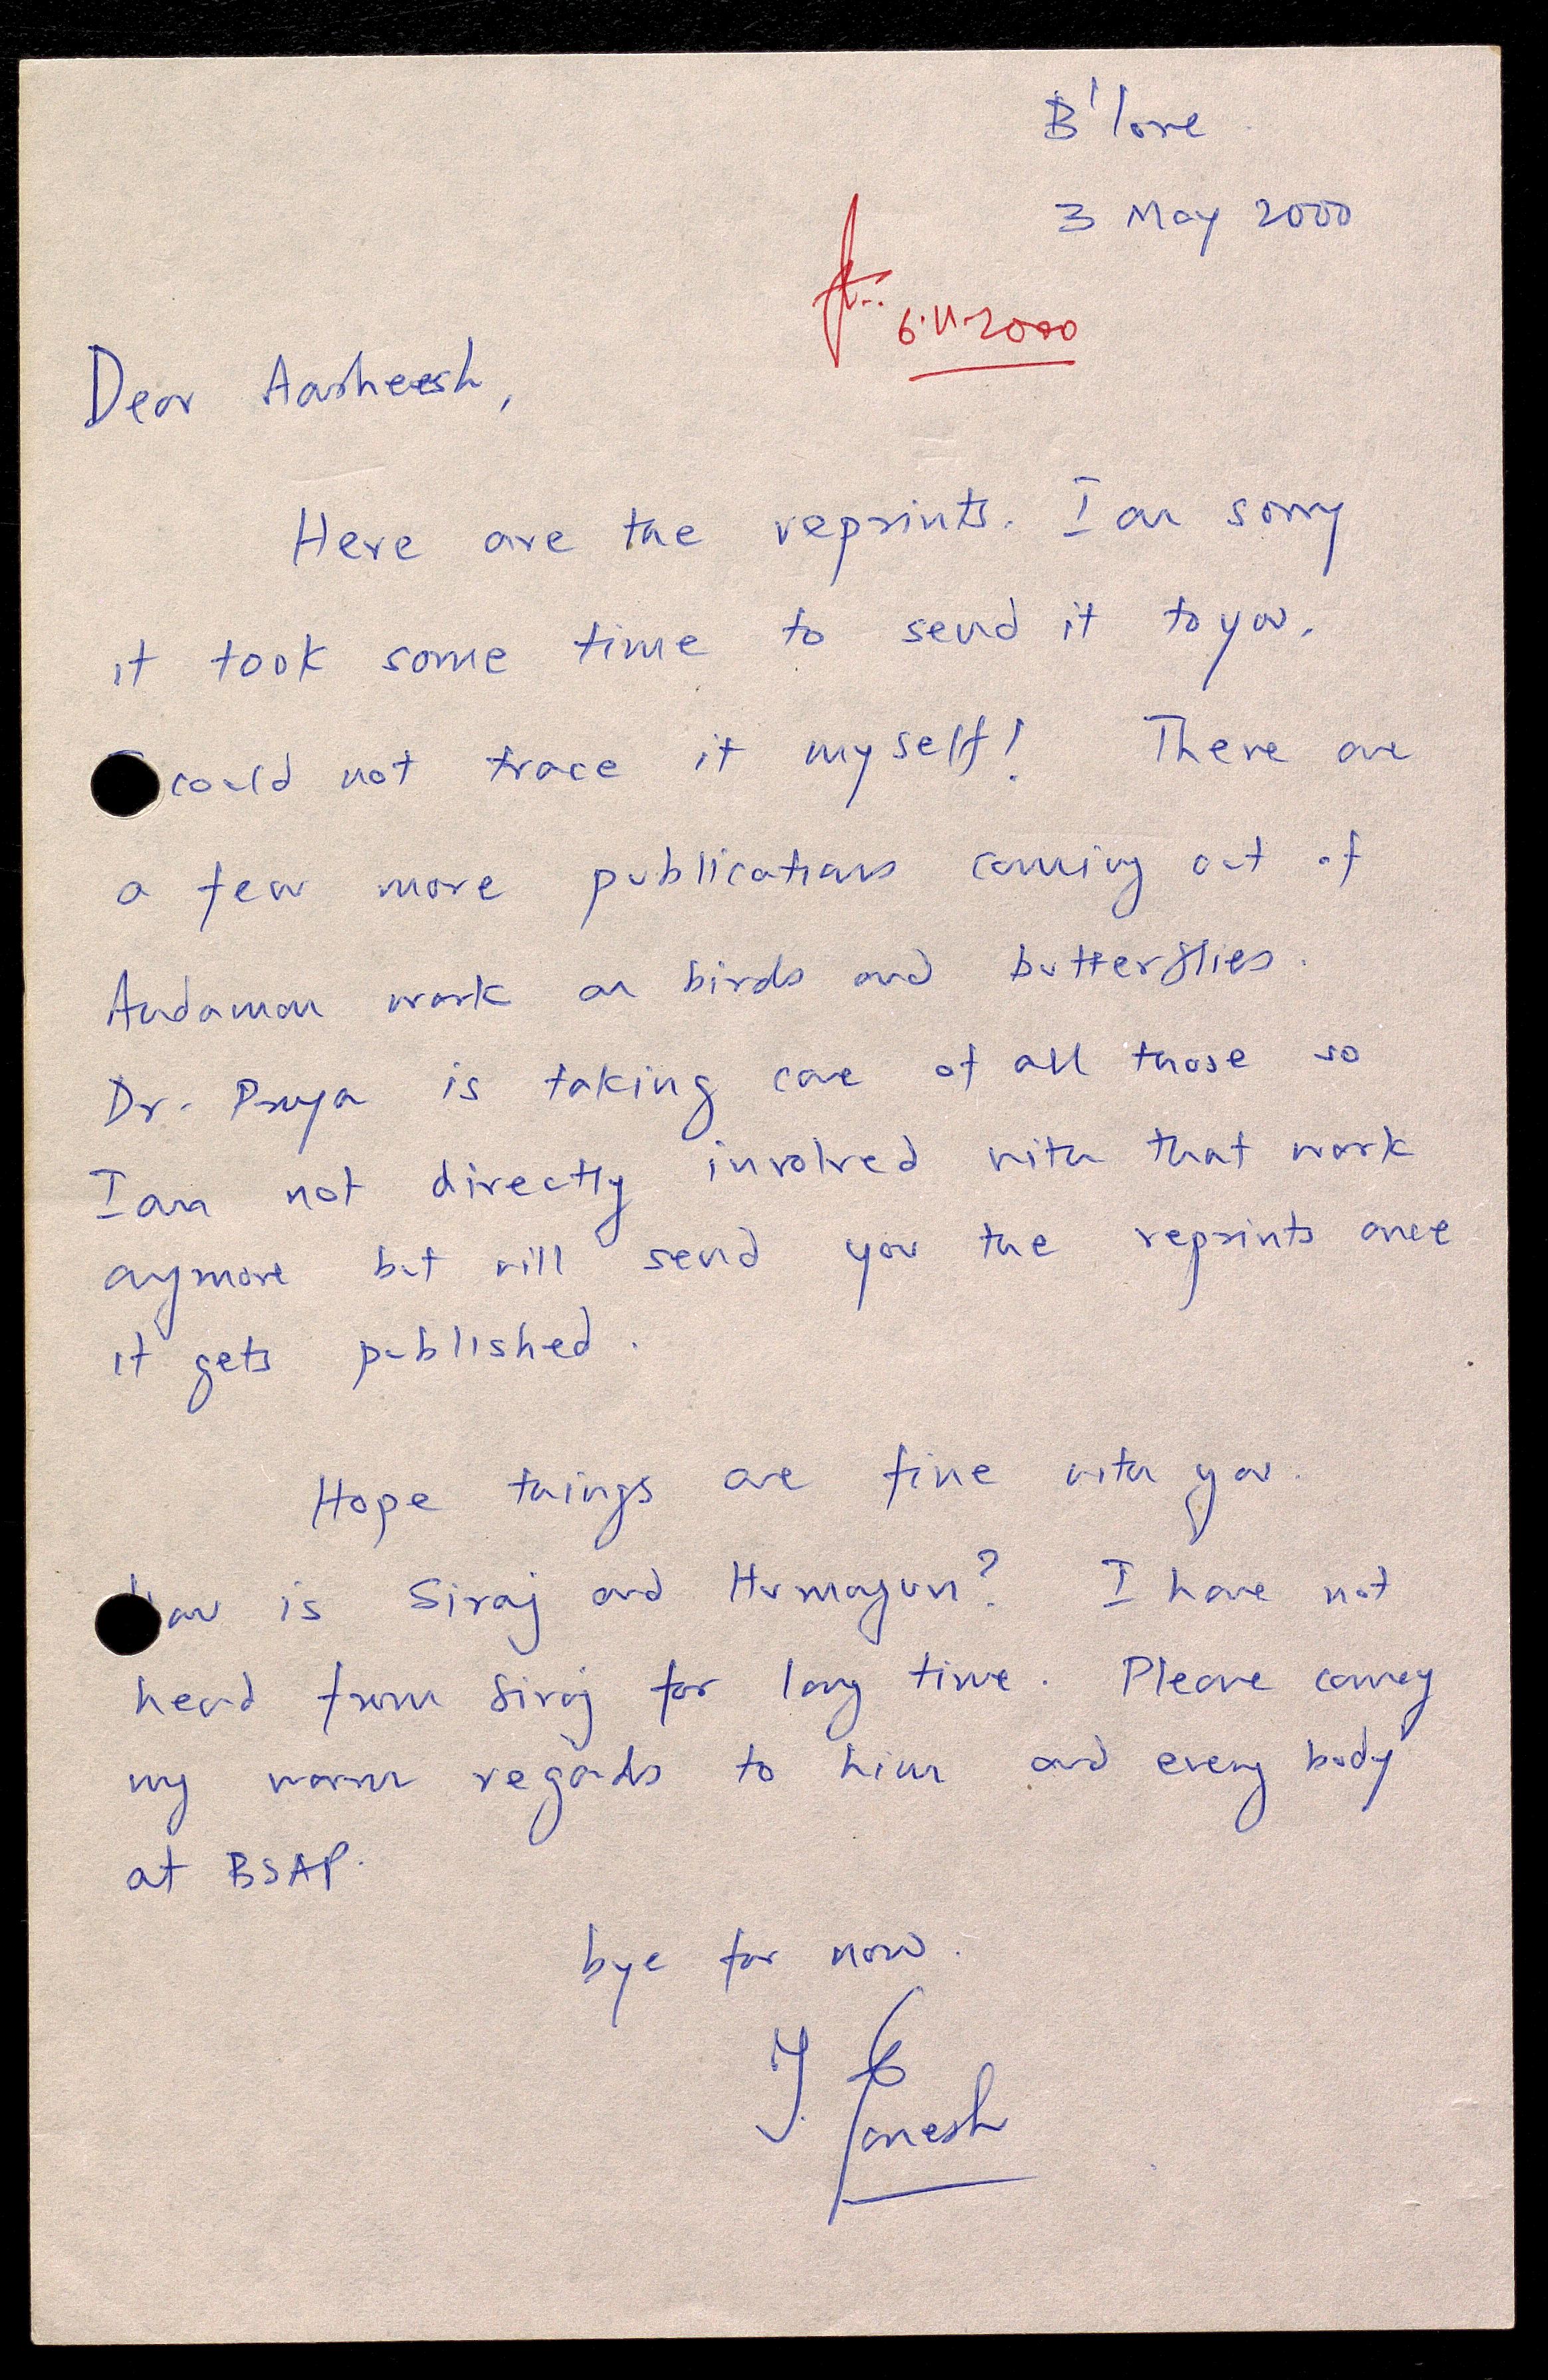 B'lore
3 May 2000
6.11.2000
Dear Aasheesh,
Here are the reprints. I am sorry
it took some time to send it to you.
could not trace it myself! There are
a few more publications coming out of
Andaman work on birds and butterflies.
Dr. Priya is taking care of all those so
I am not directly involved with that work
anymore but will send you the reprints once
it gets published.
Hope things are fine with you.
How is Siraj and Humayun? I have not
heard from Siraj for long time. Please convey
my warm regards to him and every body
at BSAP.
bye for now.
T. Ganesh